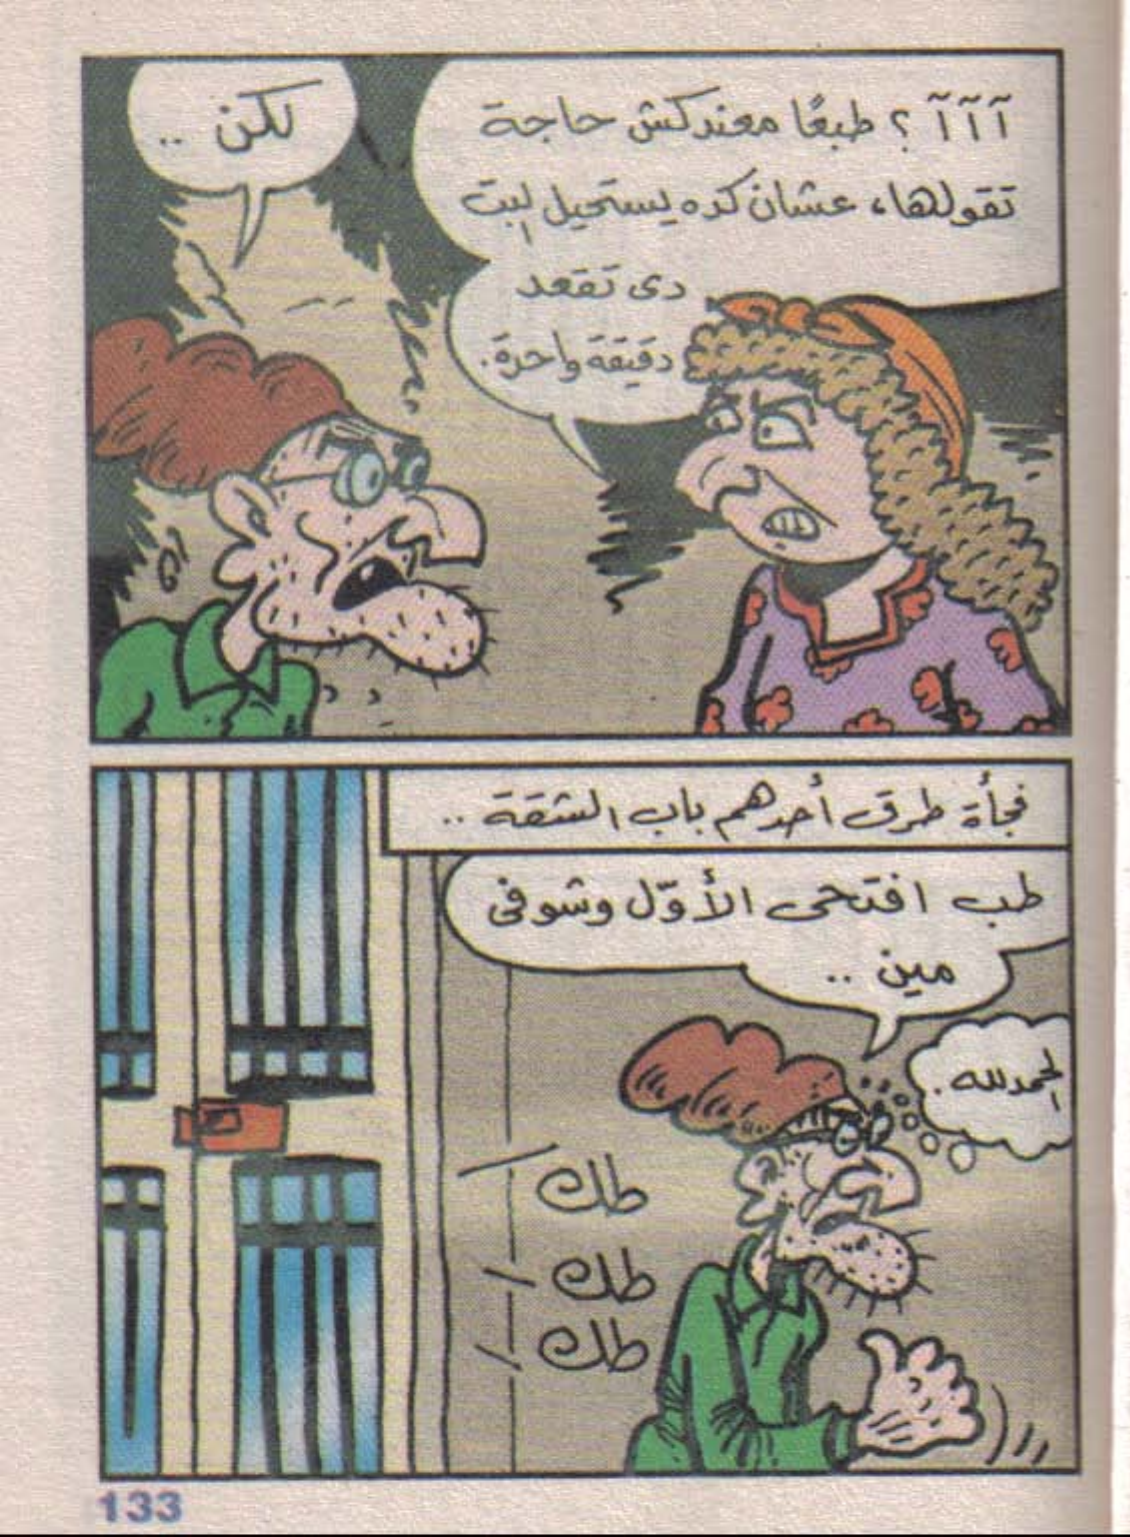 آآآ ؟ طبعًا معندكش حاجة
تقولها، عشان كده يستحيل البت
دى تقعد
دقيقة واحدة.
لكن ..
فجأة طرق أحدهم باب الشقة ..
طب افتحى الأوّل وشوفى
مين ..
الحمدلله .
طك
طك
طك
133